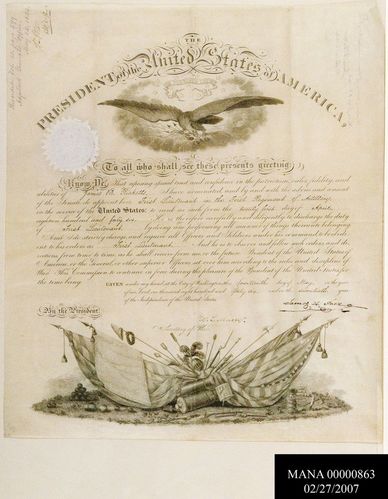 THE
PRESIDENT of the United States of AMERICA,
To all who shall see these presents greeting:
Know Ye, That reposing special trust and confidence in the patriotism, valor, fidelity, and
abilities of James B. Ricketts I have nominated, and by and with the advice and consent
of the Senate, do appoint him First Lieutenant in the First Regiment of Artillery
in the service of the United States: to rank as such from the day of April
eighteen hundred and forty six. He is therefore carefully and diligently to discharge the duty
of First Lieutenant by doing and performing all manner of things thereunto belonging.
And I do strictly charge, and require all Officers and Soldiers under his command to be obedi-
ent to his orders as First Lieutenant. And he is to observe and follow such orders, and di-
rections, from time to time, as he shall receive from me, or the future President of the United States of
America, or the General or other superior Officers set over him, according to the rules and discipline of
War. This Commission to continue in force during the pleasure of the President of the United States for
the time being.
GIVEN under my hand at the City of Washington this day of May in the year
of our Lord one thousand eight hundred and forty six and in the year
of the Independence of the United States.
By the President:
James K. Polk
Secretary of War.
MANA 00000863
02/27/2007